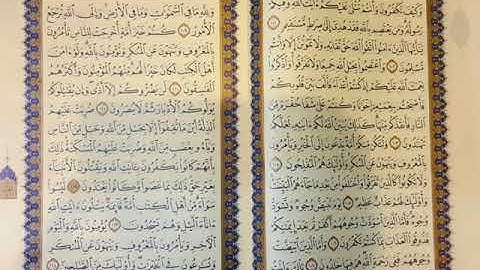 وَكَيْفَ تَكْفُرُونَ وَأَنْتُمْ تُتْلَىٰ عَلَيْكُمْ اٰيَاتُ اللّٰهِ وَفِيكُمْ
رَسُولُهُ وَمَنْ يَعْتَصِمْ بِاللّٰهِ فَقَدْ هُدِيَ إِلَىٰ صِرَاطٍ مُسْتَقِيمٍ
يَا أَيُّهَا الَّذِينَ اٰمَنُوا اتَّقُوا اللّٰهَ حَقَّ تُقَاتِهِ وَلَا تَمُوتُنَّ إِلَّا وَأَنْتُمْ
مُسْلِمُونَ وَاعْتَصِمُوا بِحَبْلِ اللّٰهِ جَمِيعًا وَلَا تَفَرَّقُوا وَاذْكُرُوا
نِعْمَتَ اللّٰهِ عَلَيْكُمْ إِذْ كُنْتُمْ أَعْدَاءً فَأَلَّفَ بَيْنَ قُلُوبِكُمْ
فَأَصْبَحْتُمْ بِنِعْمَتِهِ إِخْوَانًا وَكُنْتُمْ عَلَىٰ شَفَا حُفْرَةٍ مِنَ
النَّارِ فَأَنْقَذَكُمْ مِنْهَا كَذٰلِكَ يُبَيِّنُ اللّٰهُ لَكُمْ اٰيَاتِهِ لَعَلَّكُمْ
تَهْتَدُونَ وَلْتَكُنْ مِنْكُمْ أُمَّةٌ يَدْعُونَ إِلَى الْخَيْرِ وَيَأْمُرُونَ
بِالْمَعْرُوفِ وَيَنْهَوْنَ عَنِ الْمُنْكَرِ وَأُولٰئِكَ هُمُ الْمُفْلِحُونَ
وَلَا تَكُونُوا كَالَّذِينَ تَفَرَّقُوا وَاخْتَلَفُوا مِنْ بَعْدِ مَا جَاءَهُمُ الْبَيِّنَاتُ
وَأُولٰئِكَ لَهُمْ عَذَابٌ عَظِيمٌ يَوْمَ تَبْيَضُّ وُجُوهٌ وَتَسْوَدُّ
وُجُوهٌ فَأَمَّا الَّذِينَ اسْوَدَّتْ وُجُوهُهُمْ أَكَفَرْتُمْ بَعْدَ إِيمَانِكُمْ
فَذُوقُوا الْعَذَابَ بِمَا كُنْتُمْ تَكْفُرُونَ وَأَمَّا الَّذِينَ ابْيَضَّتْ
وُجُوهُهُمْ فَفِي رَحْمَةِ
وَلِلّٰهِ مَا فِي السَّمٰوَاتِ وَمَا فِي الْأَرْضِ وَإِلَى اللّٰهِ تُرْجَعُ
الْأُمُورُ كُنْتُمْ خَيْرَ أُمَّةٍ أُخْرِجَتْ لِلنَّاسِ تَأْمُرُونَ
بِالْمَعْرُوفِ وَتَنْهَوْنَ عَنِ الْمُنْكَرِ وَتُؤْمِنُونَ بِاللّٰهِ وَلَوْ اٰمَنَ
أَهْلُ الْكِتَابِ لَكَانَ خَيْرًا لَهُمْ مِنْهُمُ الْمُؤْمِنُونَ وَأَكْثَرُهُمُ
الْفَاسِقُونَ لَنْ يَضُرُّوكُمْ إِلَّا أَذًى وَإِنْ يُقَاتِلُوكُمْ
يُوَلُّوكُمُ الْأَدْبَارَ ثُمَّ لَا يُنْصَرُونَ ضُرِبَتْ عَلَيْهِمُ
الذِّلَّةُ أَيْنَ مَا ثُقِفُوا إِلَّا بِحَبْلٍ مِنَ اللّٰهِ وَحَبْلٍ مِنَ النَّاسِ
وَبَاءُوا بِغَضَبٍ مِنَ اللّٰهِ وَضُرِبَتْ عَلَيْهِمُ الْمَسْكَنَةُ ذٰلِكَ
بِأَنَّهُمْ كَانُوا يَكْفُرُونَ بِاٰيَاتِ اللّٰهِ وَيَقْتُلُونَ الْأَنْبِيَاءَ
بِغَيْرِ حَقٍّ ذٰلِكَ بِمَا عَصَوْا وَكَانُوا يَعْتَدُونَ لَيْسُوا
سَوَاءً مِنْ أَهْلِ الْكِتَابِ أُمَّةٌ قَائِمَةٌ يَتْلُونَ اٰيَاتِ اللّٰهِ
اٰنَاءَ اللَّيْلِ وَهُمْ يَسْجُدُونَ يُؤْمِنُونَ بِاللّٰهِ وَالْيَوْمِ
الْاٰخِرِ وَيَأْمُرُونَ بِالْمَعْرُوفِ وَيَنْهَوْنَ عَنِ الْمُنْكَرِ
وَيُسَارِعُونَ فِي الْخَيْرَاتِ وَأُولٰئِكَ مِنَ الصَّالِحِينَ